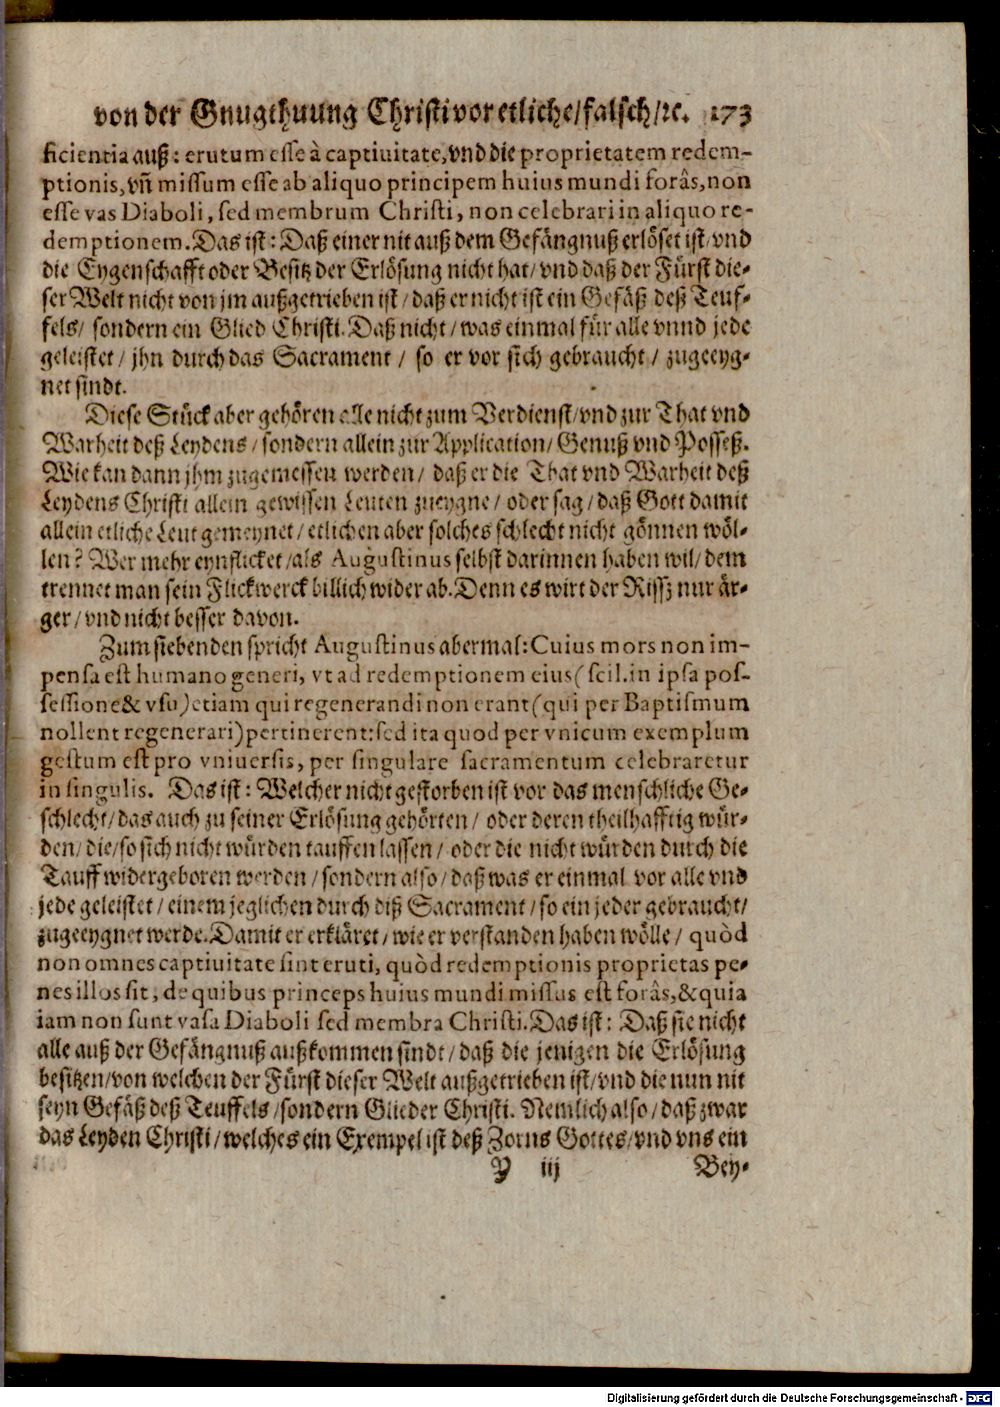 von der Gnugthuung Christi vor etliche/falsch/ꝛc. 173
ficientia auß: erutum esse à captiuitate, vnd die proprietatem redem-
ptionis, vn̄ missum esse ab aliquo principem huius mundi forâs, non
esse vas Diaboli, sed membrum Christi, non celebrari in aliquo re-
demptionem. Das ist: Daß einer nit auß dem Gefängnuß erlöset ist/ vnd
die Eygenschafft oder Besitz der Erlösung nicht hat/ vnd daß der Fürst die-
ser Welt nicht von jm außgetrieben ist/ daß er nicht ist ein Gefäß deß Teuf-
fels/ sondern ein Glied Christi. Daß nicht/ was einmal für alle vnnd jede
geleistet/ jhn durch das Sacrament/ so er vor sich gebraucht/ zugeeyg-
net sindt.
Diese Stück aber gehören alle nicht zum Verdienst/ vnd zur That vnd
Warheit deß Leydens/ sondern allein zur Application/ Genuß vnd Posseß.
Wie kan dann jhm zugemessen werden/ daß er die That vnd Warheit deß
Leydens Christi allein gewissen Leuten zueygne/ oder sag/ daß Gott damit
allein etliche Leut gemeynet/ etlichen aber solches schlecht nicht gönnen wöl-
len? Wer mehr eynflicket/ als Augustinus selbst darinnen haben wil/ dem
trennet man sein Flickwerck billich wider ab. Denn es wirt der Rissz nur är-
ger/ vnd nicht besser davon.
Zum siebenden spricht Augustinus abermal: Cuius mors non im-
pensa est humano generi, vt ad redemptionem eius (scil. in ipsa pos-
sessione & vsu) etiam qui regenerandi non erant (qui per Baptismum
nollent regenerari) pertinerent: sed ita quod per vnicum exemplum
gestum est pro vniuersis, per singulare sacramentum celebraretur
in singulis. Das ist: Welcher nicht gestorben ist vor das menschliche Ge-
schlecht/ das auch zu seiner Erlösung gehörten/ oder deren theilhafftig wür-
den/ die/ so sich nicht würden tauffen lassen/ oder die nicht würden durch die
Tauff widergeboren werden/ sondern also/ daß was er einmal vor alle vnd
jede geleistet/ einem jeglichen durch diß Sacrament/ so ein jeder gebraucht/
zugeeygnet werde. Damit er erkläret/ wie er verstanden haben wölle/ quòd
non omnes captiuitate sint eruti, quòd redemptionis proprietas pe-
nes illos sit, de quibus princeps huius mundi missus est forâs, & quia
iam non sunt vasa Diaboli sed membra Christi. Das ist: Daß sie nicht
alle auß der Gefängnuß außkommen sindt/ daß die jenigen die Erlösung
besitzen/ von welchen der Fürst dieser Welt außgetrieben ist/ vnd die nun nit
seyn Gefäß deß Teuffels/ sondern Glieder Christi. Nemlich also/ daß zwar
das Leyden Christi/ welches ein Exempel ist deß Zorns Gottes/ vnd vns ein
Y iij Bey-
Digitalisierung gefördert durch die Deutsche Forschungsgemeinschaft - DFG